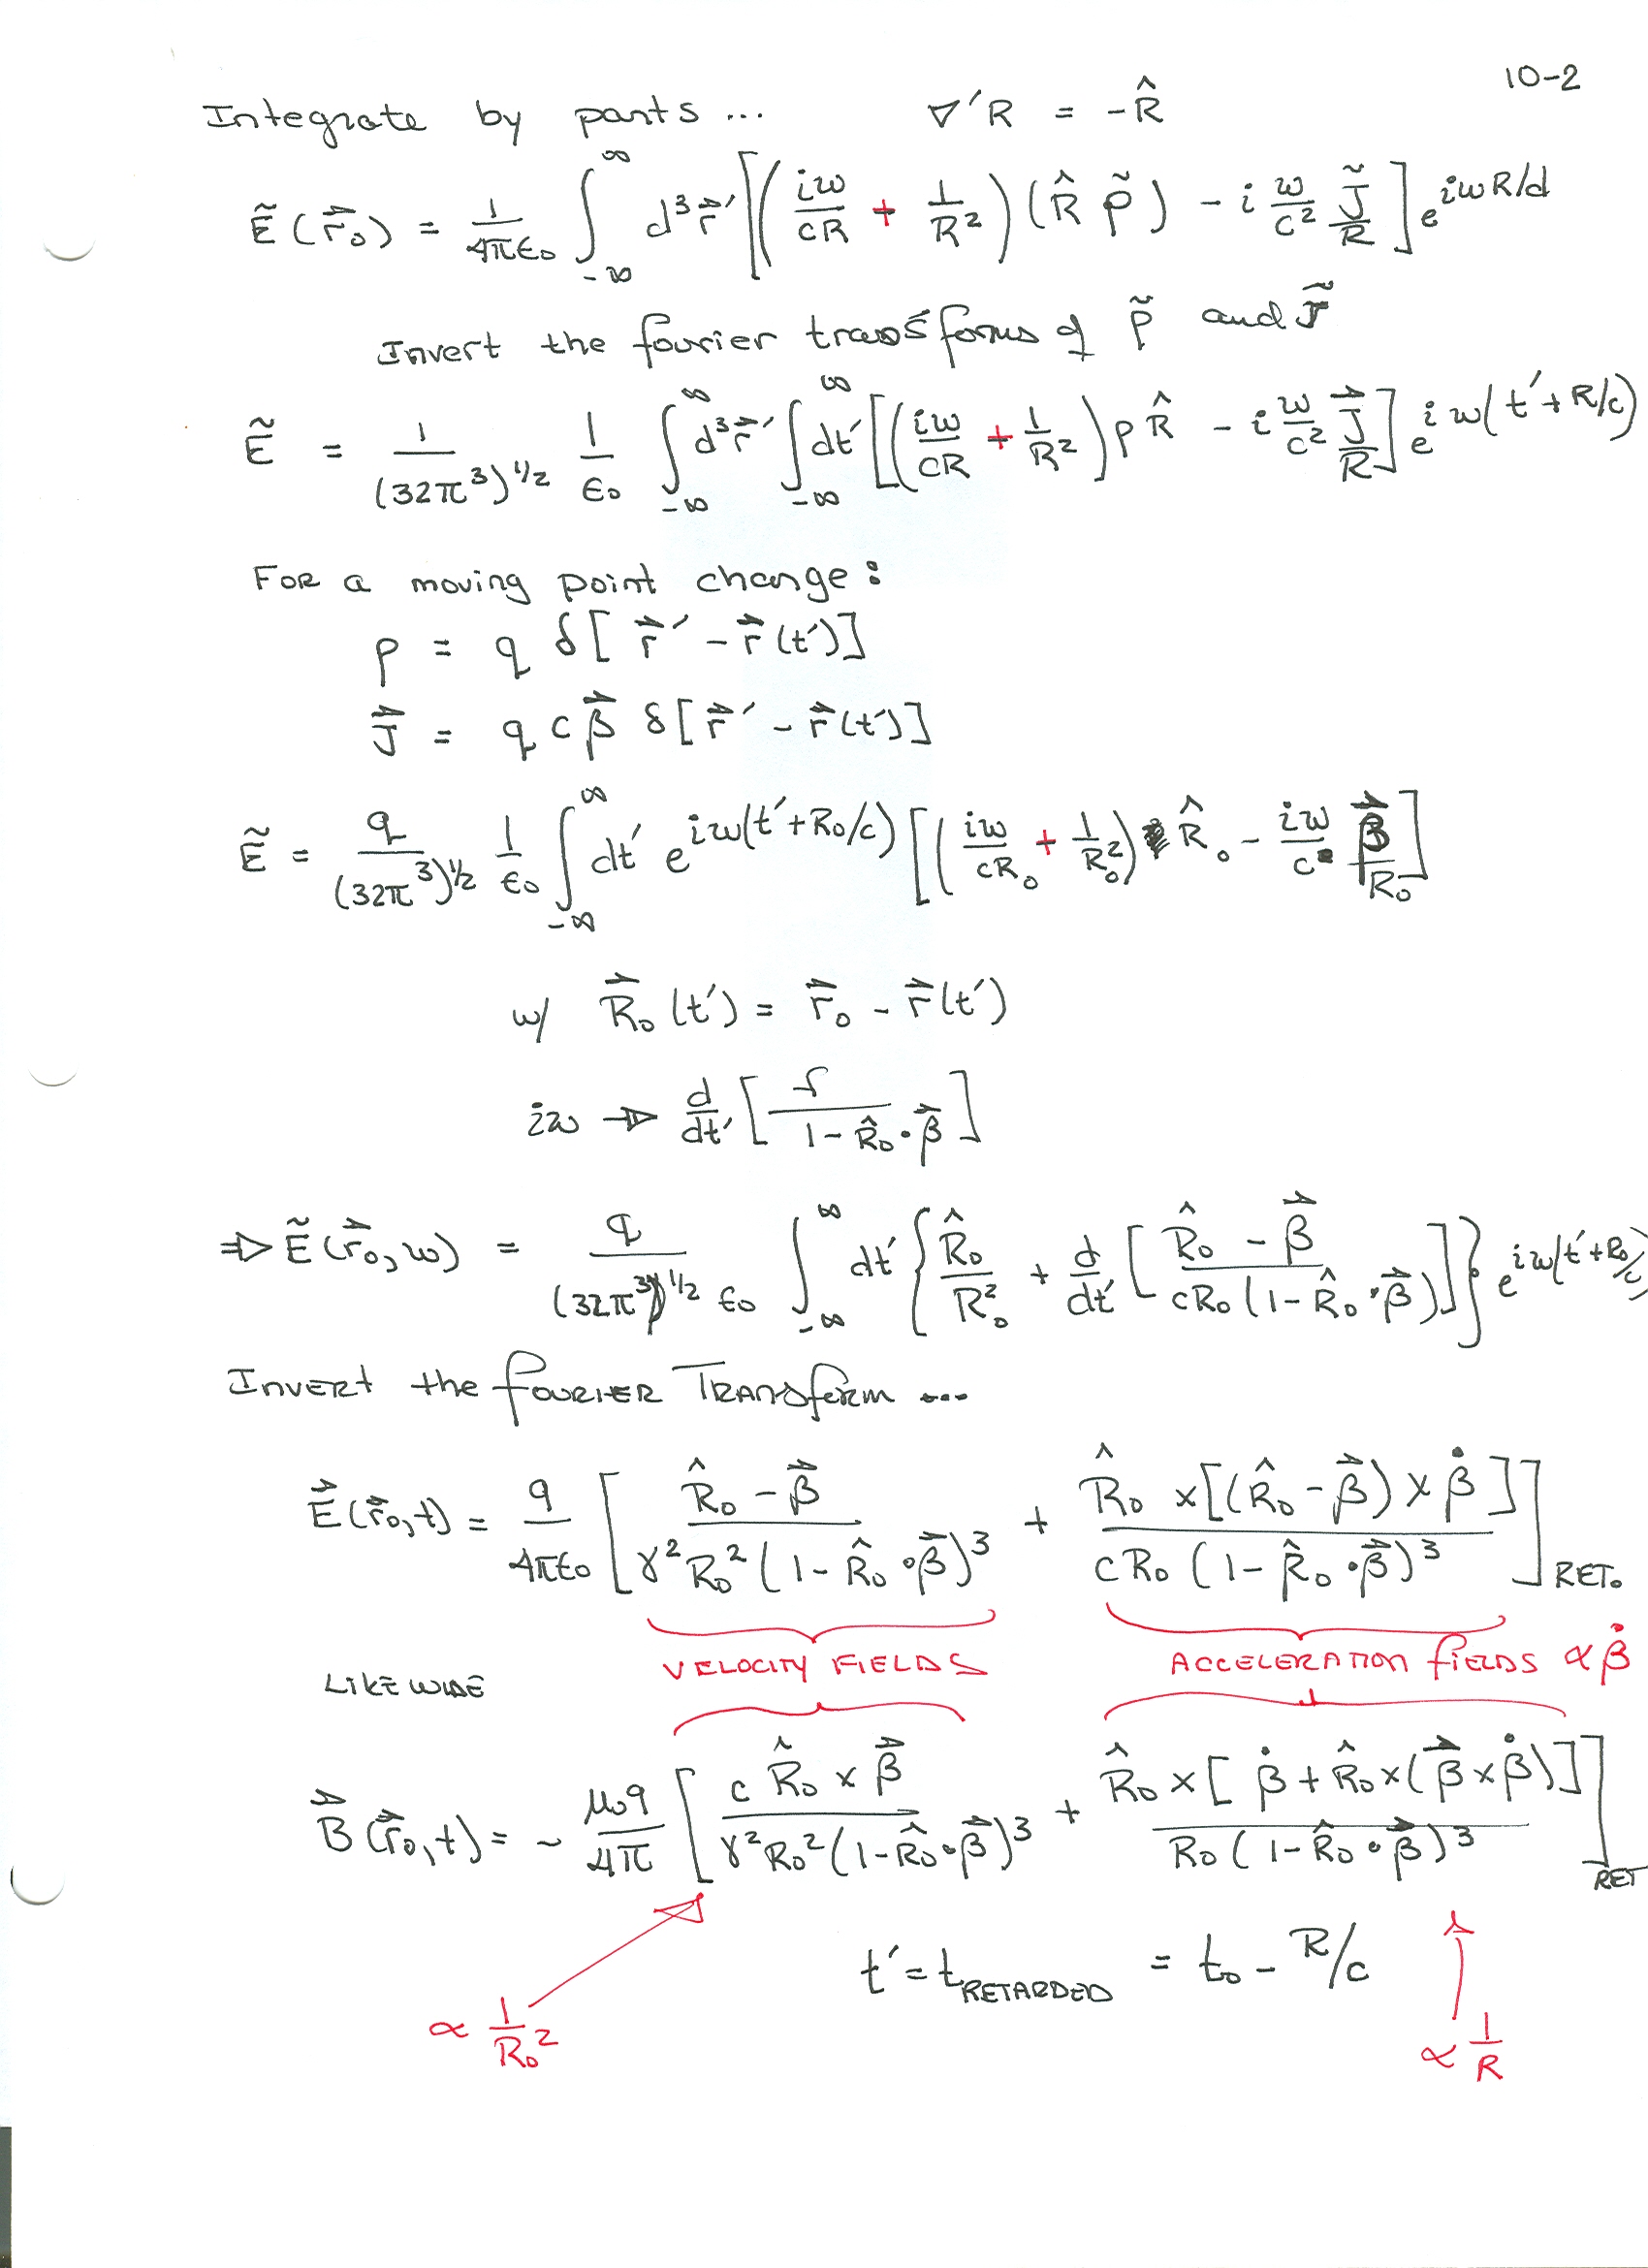 10-2
Integrate by parts ... ∇′R = -R̂
Ẽ(r⃗₀) = 1/(4πε₀) ∫_{-∞}^{∞} d³r⃗′ [(iω/(cR) + 1/R²)(R̂ ρ̃) - i ω/c² J̃/R] e^{iωR/d}
Invert the fourier transforms of ρ̃ and J̃
Ẽ = 1/(32π³)^{1/2} 1/ε₀ ∫_{-∞}^{∞} d³r⃗′ ∫_{-∞}^{∞} dt′ [(iω/(cR) + 1/R²) ρ R̂ - i ω/c² J⃗/R] e^{iω(t′+R/c)}
For a moving point charge:
ρ = q δ[r⃗′ - r⃗(t′)]
J⃗ = q c β⃗ δ[r⃗′ - r⃗(t′)]
Ẽ = q/(32π³)^{1/2} 1/ε₀ ∫_{-∞}^{∞} dt′ e^{iω(t′+R₀/c)} [(iω/(cR₀) + 1/R₀²) R̂₀ - iω/c β⃗/R₀]
w/ R⃗₀(t′) = r⃗₀ - r⃗(t′)
iω → d/dt′ [f/(1 - R̂₀·β⃗)]
⇒ Ẽ(r⃗₀, ω) = q/((32π³)^{1/2} ε₀) ∫_{-∞}^{∞} dt′ {R̂₀/R₀² + d/dt′ [(R̂₀ - β⃗)/(cR₀(1 - R̂₀·β⃗))]} e^{iω(t′+R₀/c)}
Invert the Fourier Transform ...
E⃗(r⃗₀, t) = q/(4πε₀) [(R̂₀ - β⃗)/(γ²R₀²(1 - R̂₀·β⃗)³) + R̂₀ × [(R̂₀ - β⃗) × β̇]/(cR₀(1 - R̂₀·β⃗)³)] RET.
VELOCITY FIELDS ACCELERATION fIELDS ∝ β̇
LIKEWISE
B⃗(r⃗₀, t) = - μ₀q/(4π) [c R̂₀ × β⃗/(γ²R₀²(1 - R̂₀·β⃗)³) + R̂₀ × [β̇ + R̂₀ × (β⃗ × β̇)]/(R₀(1 - R̂₀·β⃗)³)] RET
t′ = t_RETARDED = t₀ - R/c
∝ 1/R₀² ∝ 1/R